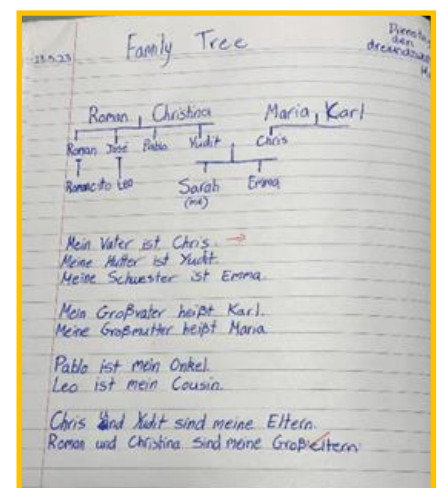 Family Tree
Dienstag
den
23.5.23
Roman Christina Maria Karl
Roman José Pablo Yudit Chris
Romancito Leo
Sarah Emma
(me)
Mein Vater ist Chris.
Meine Mutter ist Yudit.
Meine Schwester ist Emma.
Mein Großvater heißt Karl.
Meine Großmutter heißt Maria.
Pablo ist mein Onkel.
Leo ist mein Cousin.
Chris und Yudit sind meine Eltern.
Roman und Christina sind meine Großeltern.